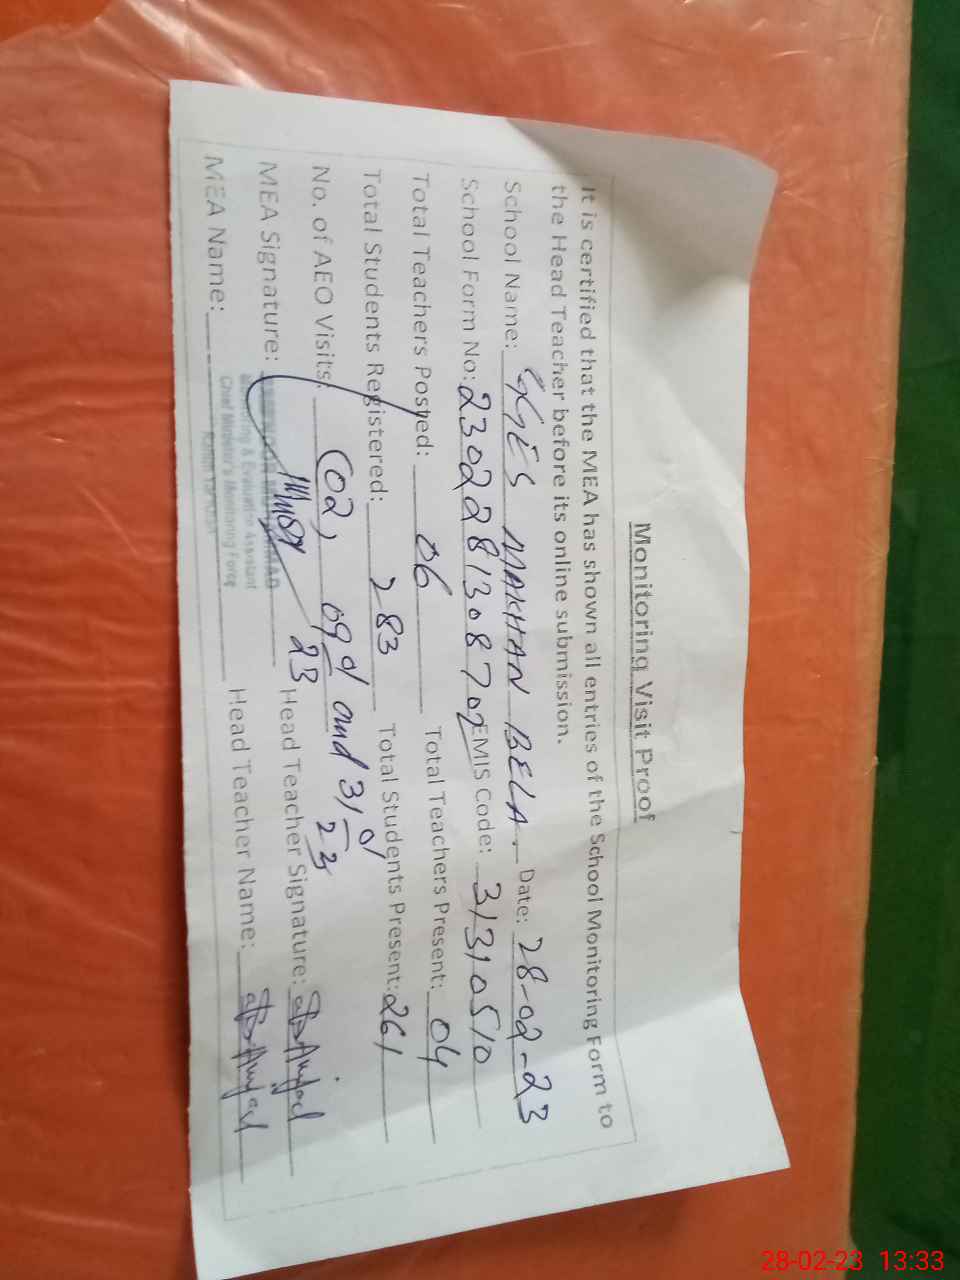 Monitoring Visit Proof
It is certified that the MEA has shown all entries of the School Monitoring Form to
the Head Teacher before its online submission.
School Name: GGES MAKHAN BELA. Date: 28-02-23
School Form No: 2302281308702 EMIS Code: 31310510
Total Teachers Posted: 06 Total Teachers Present: 04
Total Students Registered: 283 Total Students Present: 261
No. of AEO Visits: (02) 09 01 23 and 31 01 23
MEA Signature: Head Teacher Signature: Amjad
Monitoring & Evaluation Assistant
Chief Minister's Monitoring Force
MEA Name: Head Teacher Name: Amjad
28-02-23 13:33